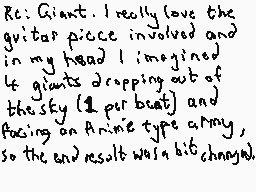 Re: Giant. I really love the
guitar piece involved and
in my head I imagined
4 giants dropping out of
the sky (1 per beat) and
facing an Anime type army,
so the end result was a bit changed.